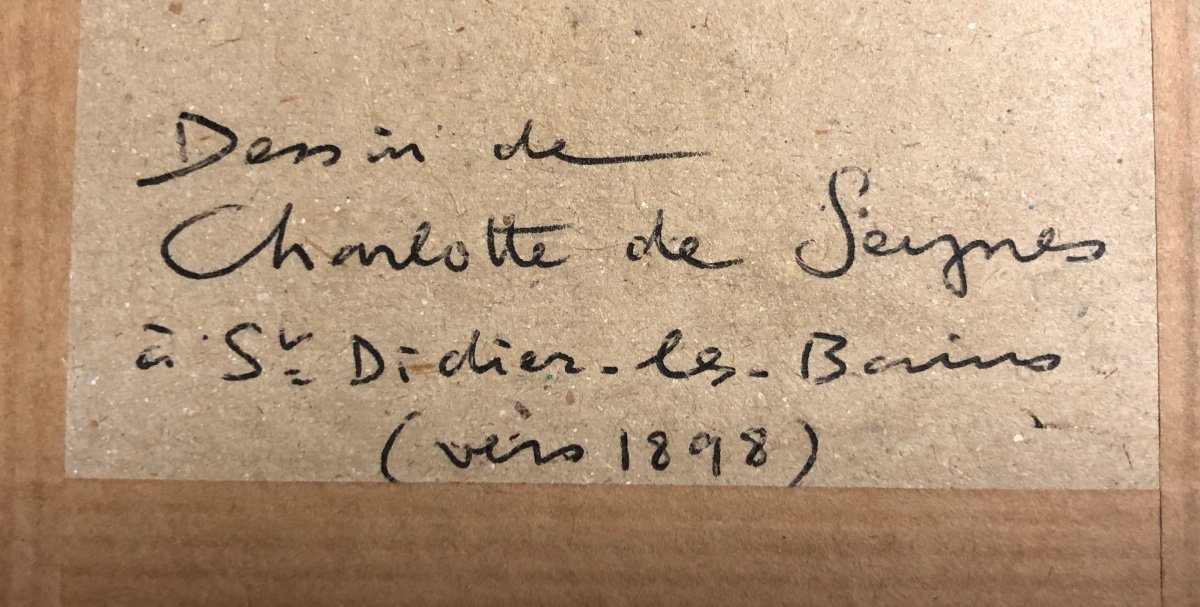 Dessin de
Charlotte de Seynes
à St Didier-les-Bains
(vers 1898)